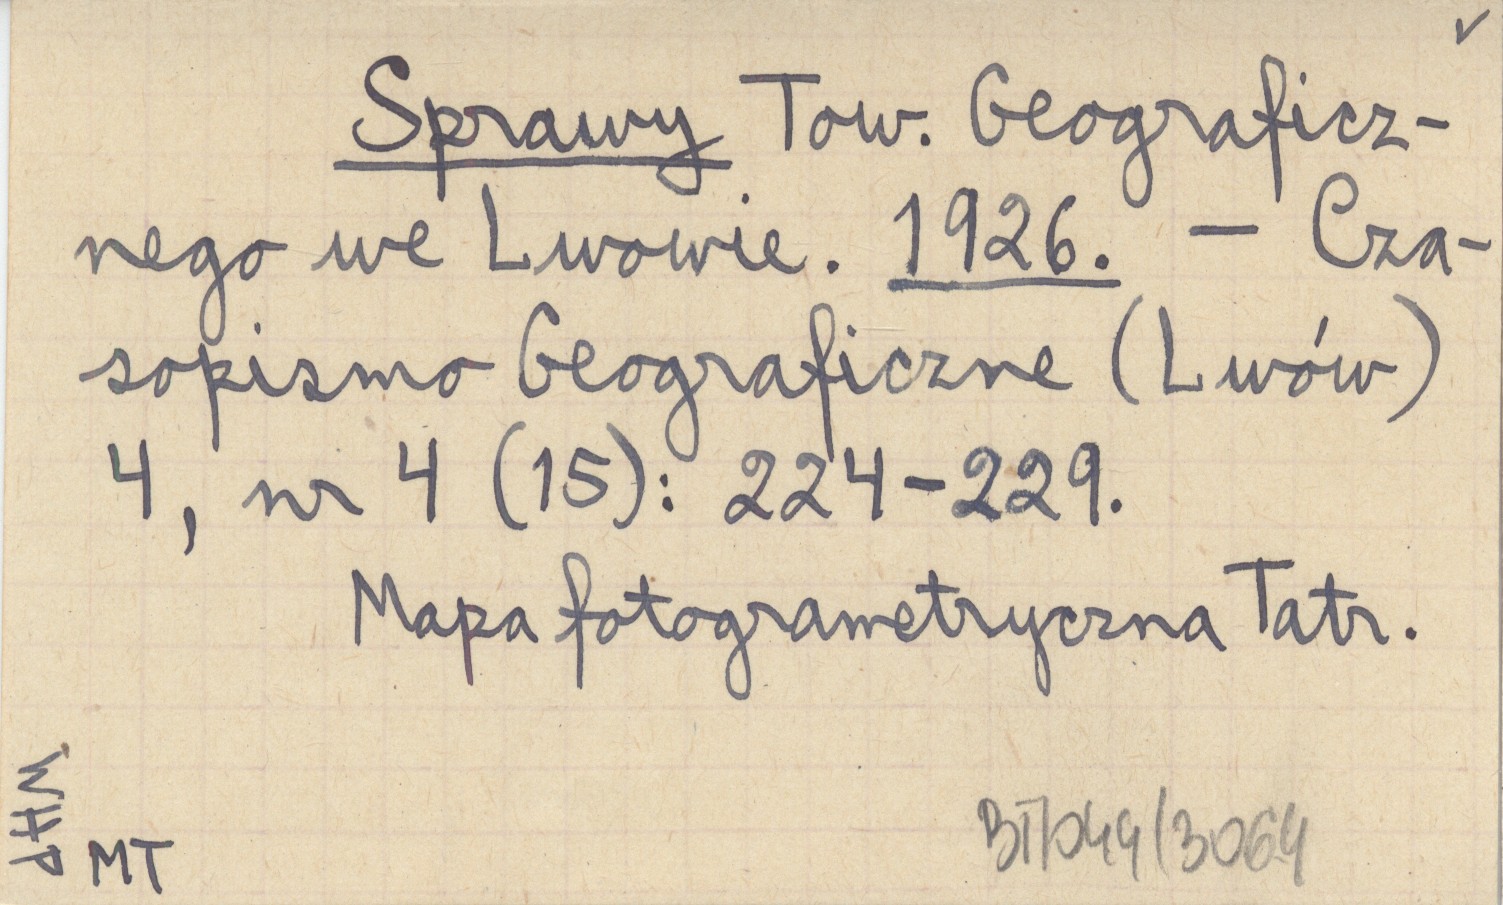 ✓
Sprawy Tow. Geograficz-
nego we Lwowie. 1926. – Cza-
sopismo Geograficzne (Lwów)
4, nr 4 (15): 224-229.
Mapa fotogrametryczna Tatr.
WHP
MT
BT/049/3064